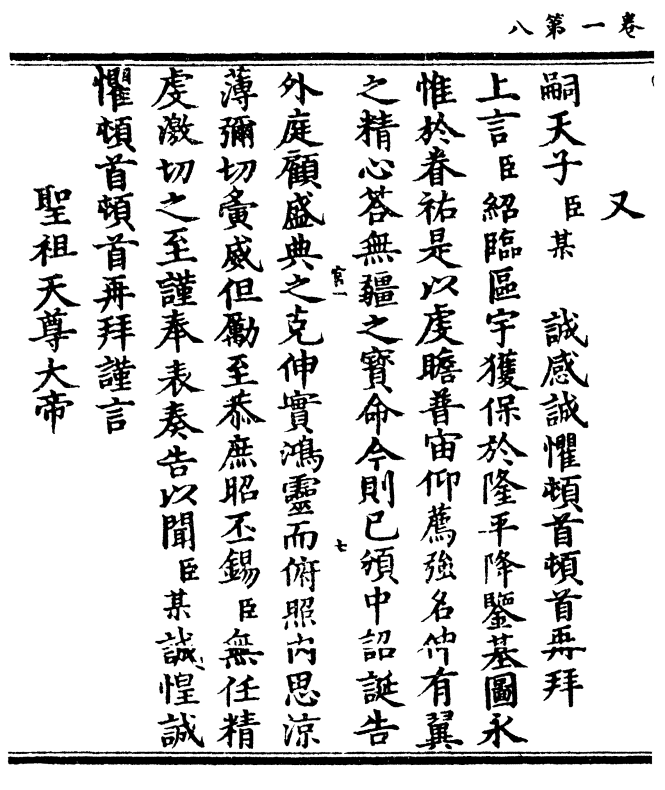 卷一第八
又
嗣天子臣某　誠感誠懼頓首頓首再拜
上言臣紹臨區宇獲保於隆平降鑒基圖永
惟於眷祐是以虔瞻普宙仰薦強名仲有翼
之精心荅無疆之寶命今則已頒中詔誕告
外庭顧盛典之克伸實鴻靈而俯照內思涼
官一
七
薄彌切夤威但勵至恭庶昭丕錫臣無任精
虔激切之至謹奉表奏告以聞臣某誠惶誠
懼頓首頓首再拜謹言
聖祖天尊大帝